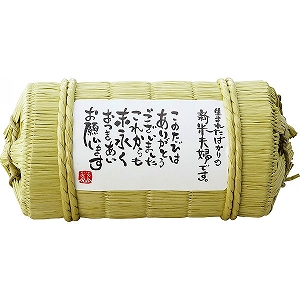 生まれたばかりの
新米夫婦です。
このたびは
ありがとう
ございました
これからも
末永く
おつきあい
お願いします